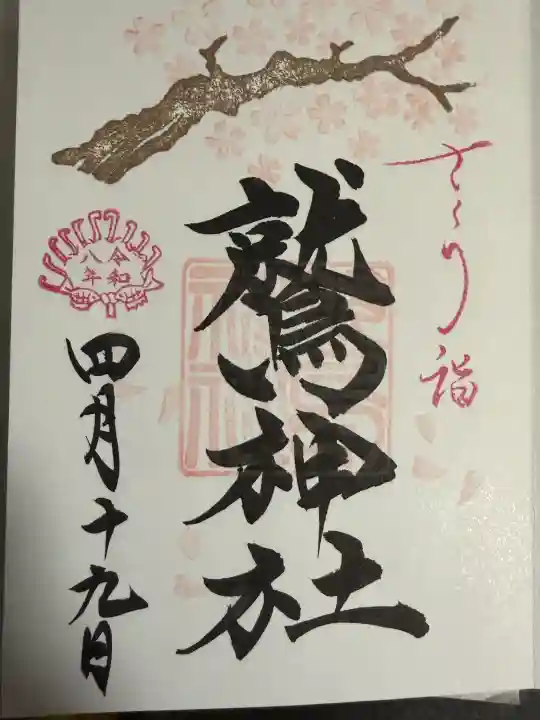 さくら詣
鷲神社
令和
八年
四月十九日